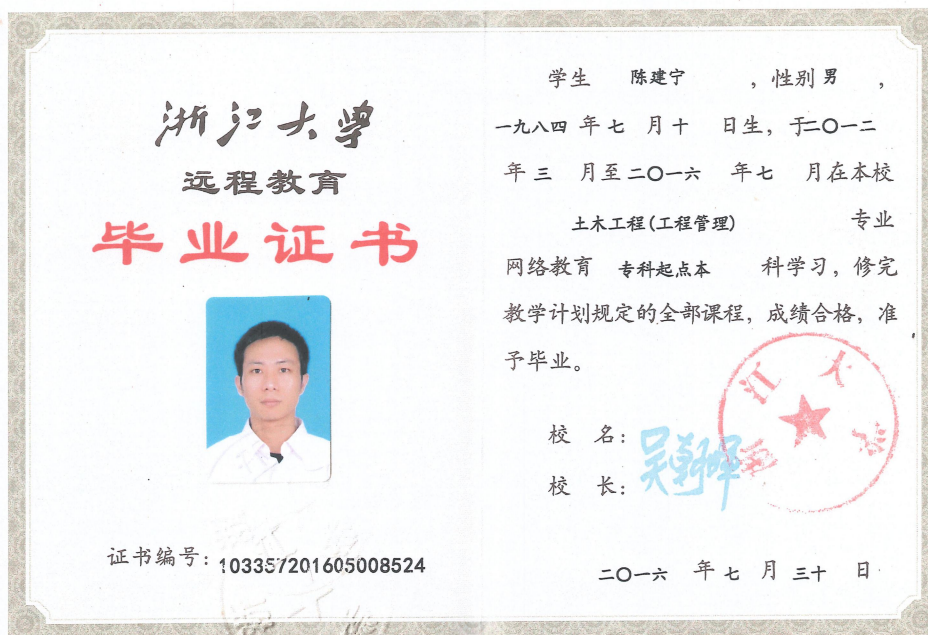 浙江大学
远程教育
毕业证书
证书编号：103357201605008524
学生 陈建宁 ，性别 男 ，
一九八四 年 七 月 十 日生，于二〇一二
年 三 月至 二〇一六 年 七 月在本校
土木工程(工程管理) 专业
网络教育 专科起点本 科学习，修完
教学计划规定的全部课程，成绩合格，准
予毕业。
校 名：
校 长：
浙江大学
二〇一六 年 七 月 三十 日